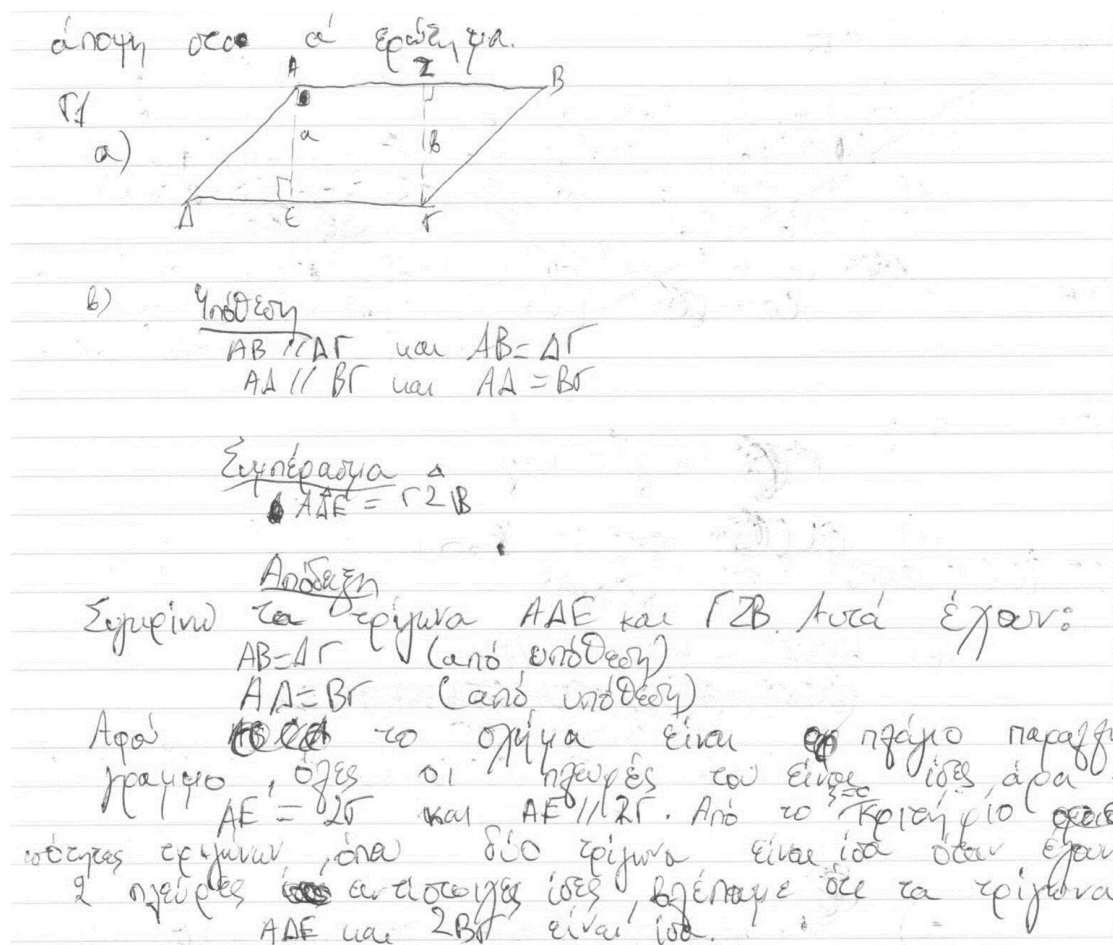 άποψη στο α' ερώτημα.
Γ1
α)
Α Ζ Β
α β
Δ Ε Γ
β) Υπόθεση
ΑΒ // ΔΓ και ΑΒ = ΔΓ
ΑΔ // ΒΓ και ΑΔ = ΒΓ
Συμπέρασμα
ΑΔΕ = ΓΖΒ
Απόδειξη
Συγκρίνω τα τρίγωνα ΑΔΕ και ΓΖΒ. Αυτά έχουν:
ΑΒ=ΔΓ (από υπόθεση)
ΑΔ=ΒΓ (από υπόθεση)
Αφού το σχήμα είναι πλάγιο παραλλη
γραμμο, όλες οι πλευρές του είναι ίσες, άρα
ΑΕ = ΖΓ και ΑΕ // ΖΓ. Από το κριτήριο
ισότητας τριγώνων, όπου δύο τρίγωνα είναι ίσα όταν έχουν
2 πλευρές αντίστοιχες ίσες, βλέπουμε ότι τα τρίγωνα
ΑΔΕ και ΖΒΓ είναι ίσα.